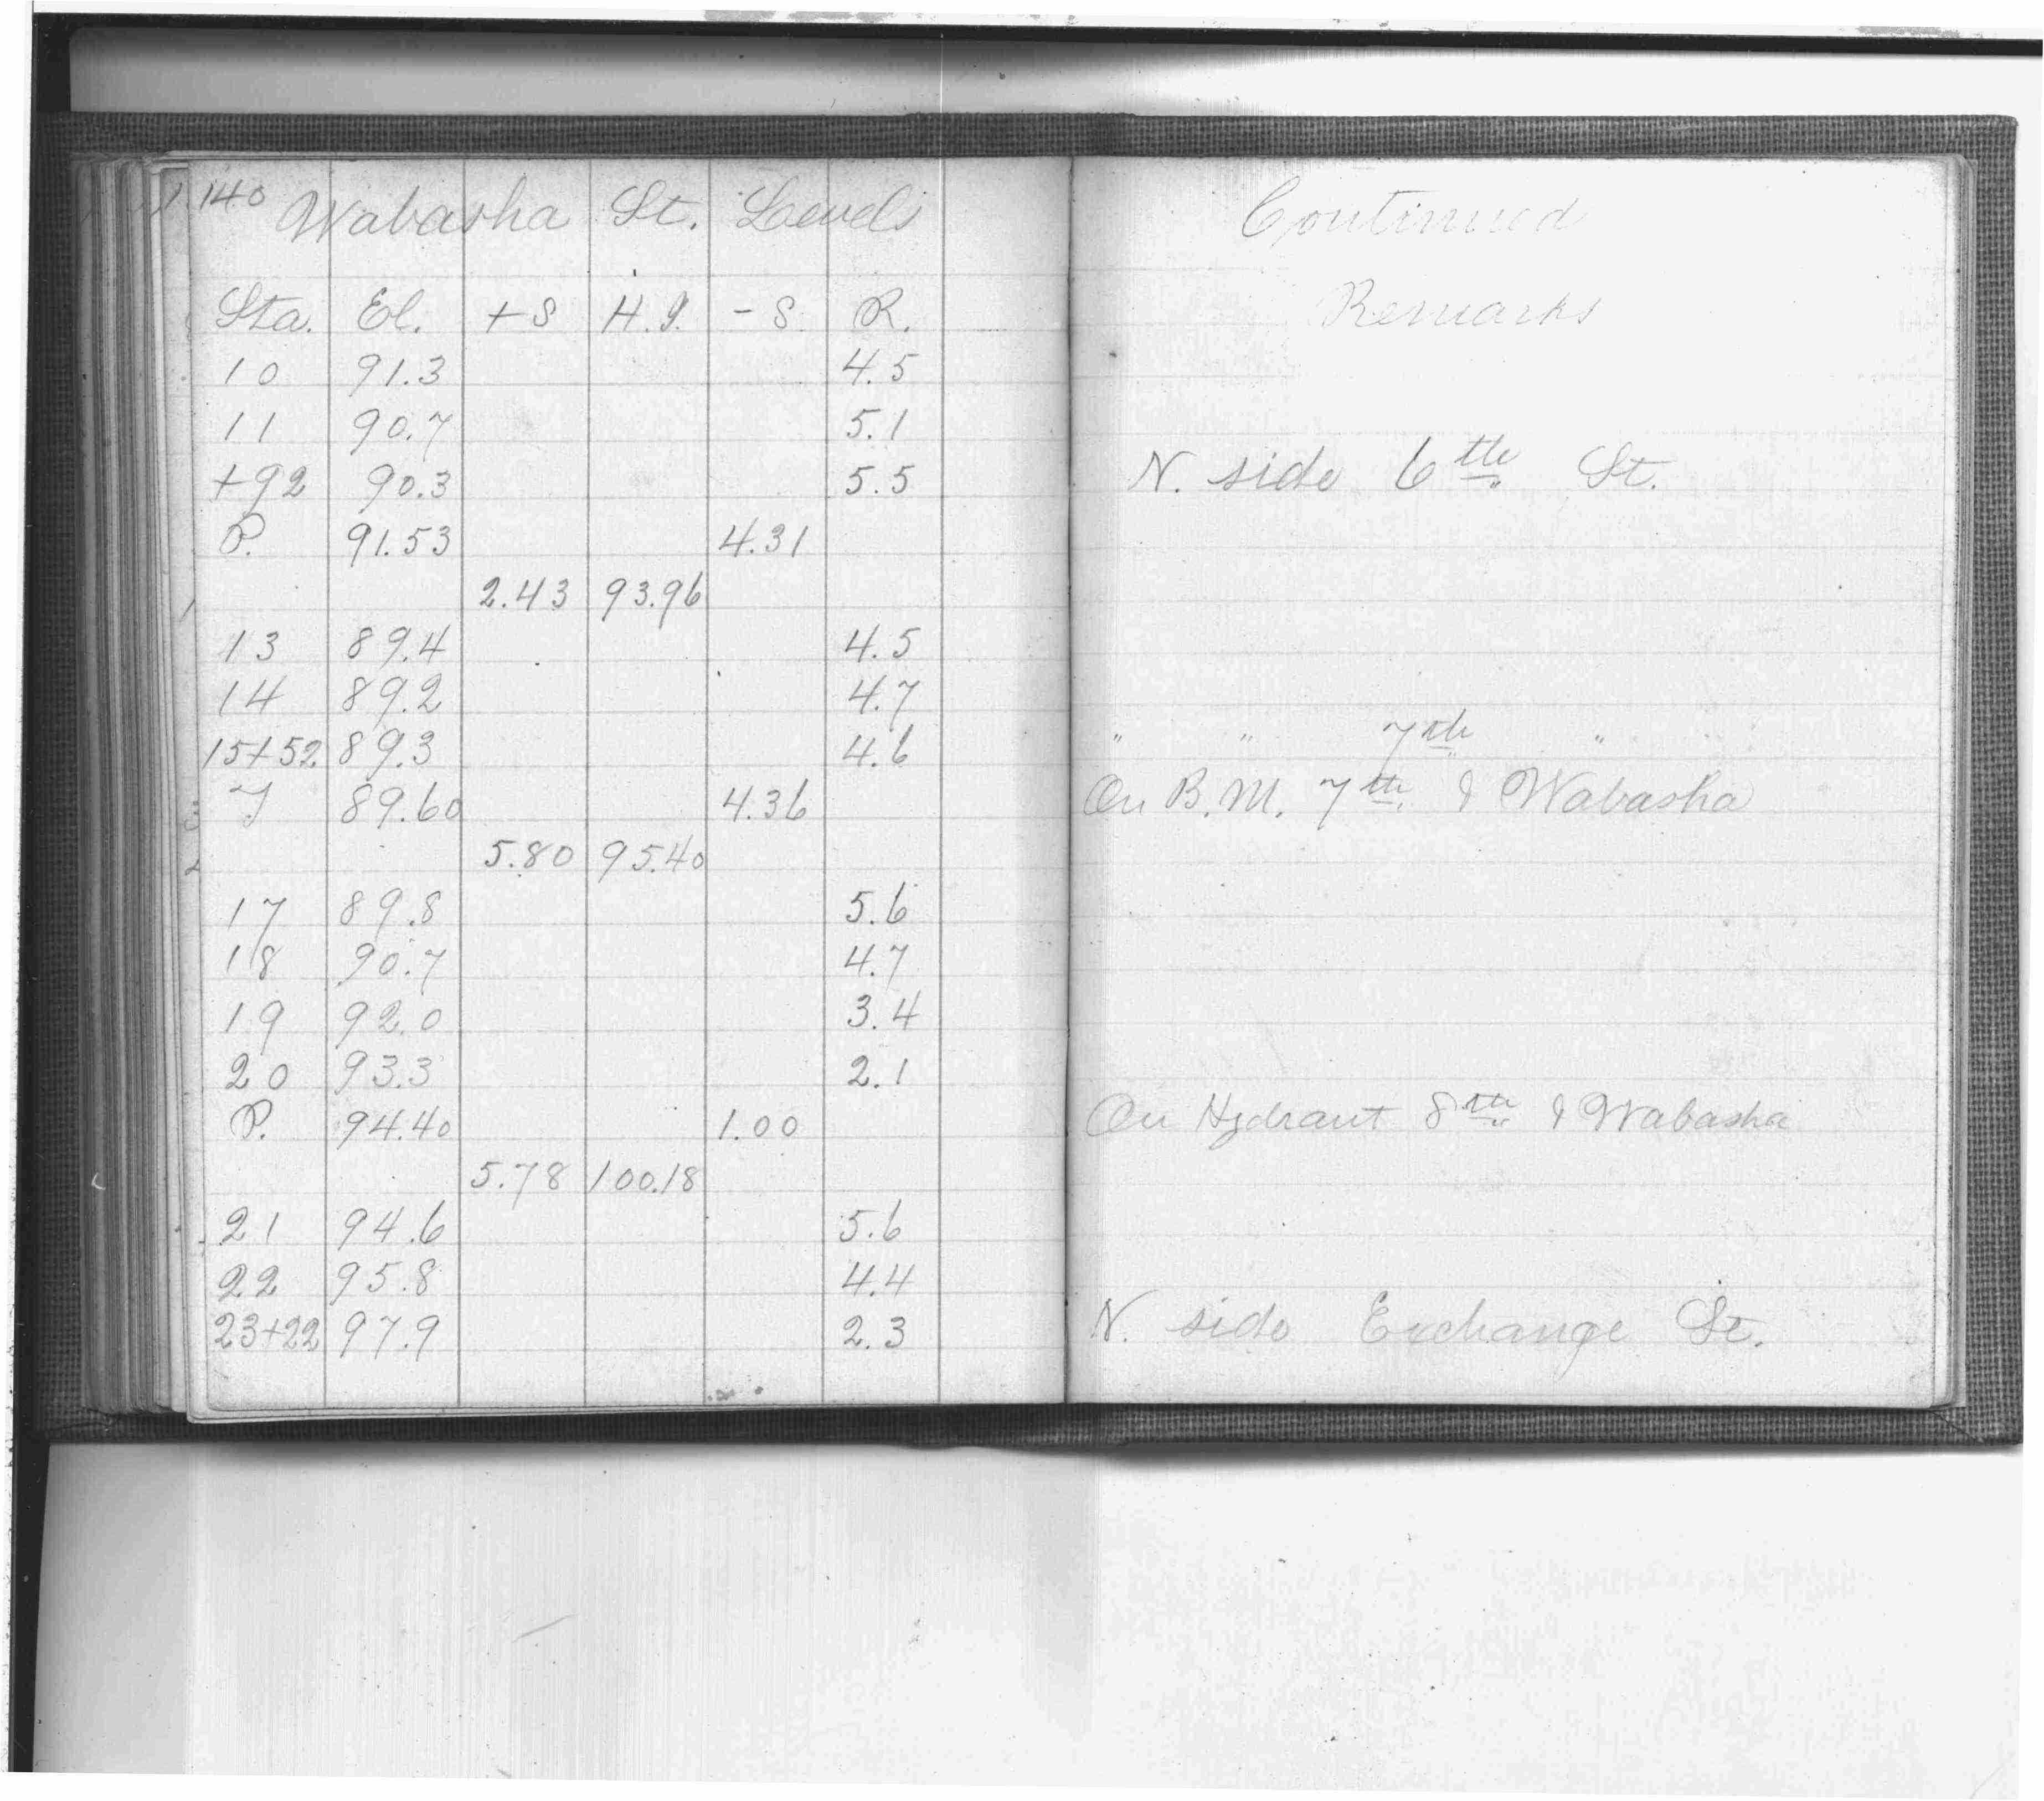 140 Wabasha St. Levels Continued
Sta. El. +S H.I. -S R. Remarks
10 91.3 4.5
11 90.7 5.1
+92 90.3 5.5 N. side 6th St.
P. 91.53 4.31
2.43 93.96
13 89.4 4.5
14 89.2 4.7
15+52 89.3 4.6 " " 7th "
89.60 4.36 On B.M. 7th & Wabasha
5.80 95.40
17 89.8 5.6
18 90.7 4.7
19 92.0 3.4
20 93.3 2.1
P. 94.40 1.00 On Hydrant 8th & Wabasha
5.78 100.18
21 94.6 5.6
22 95.8 4.4
23+22 97.9 2.3 N. side Exchange St.